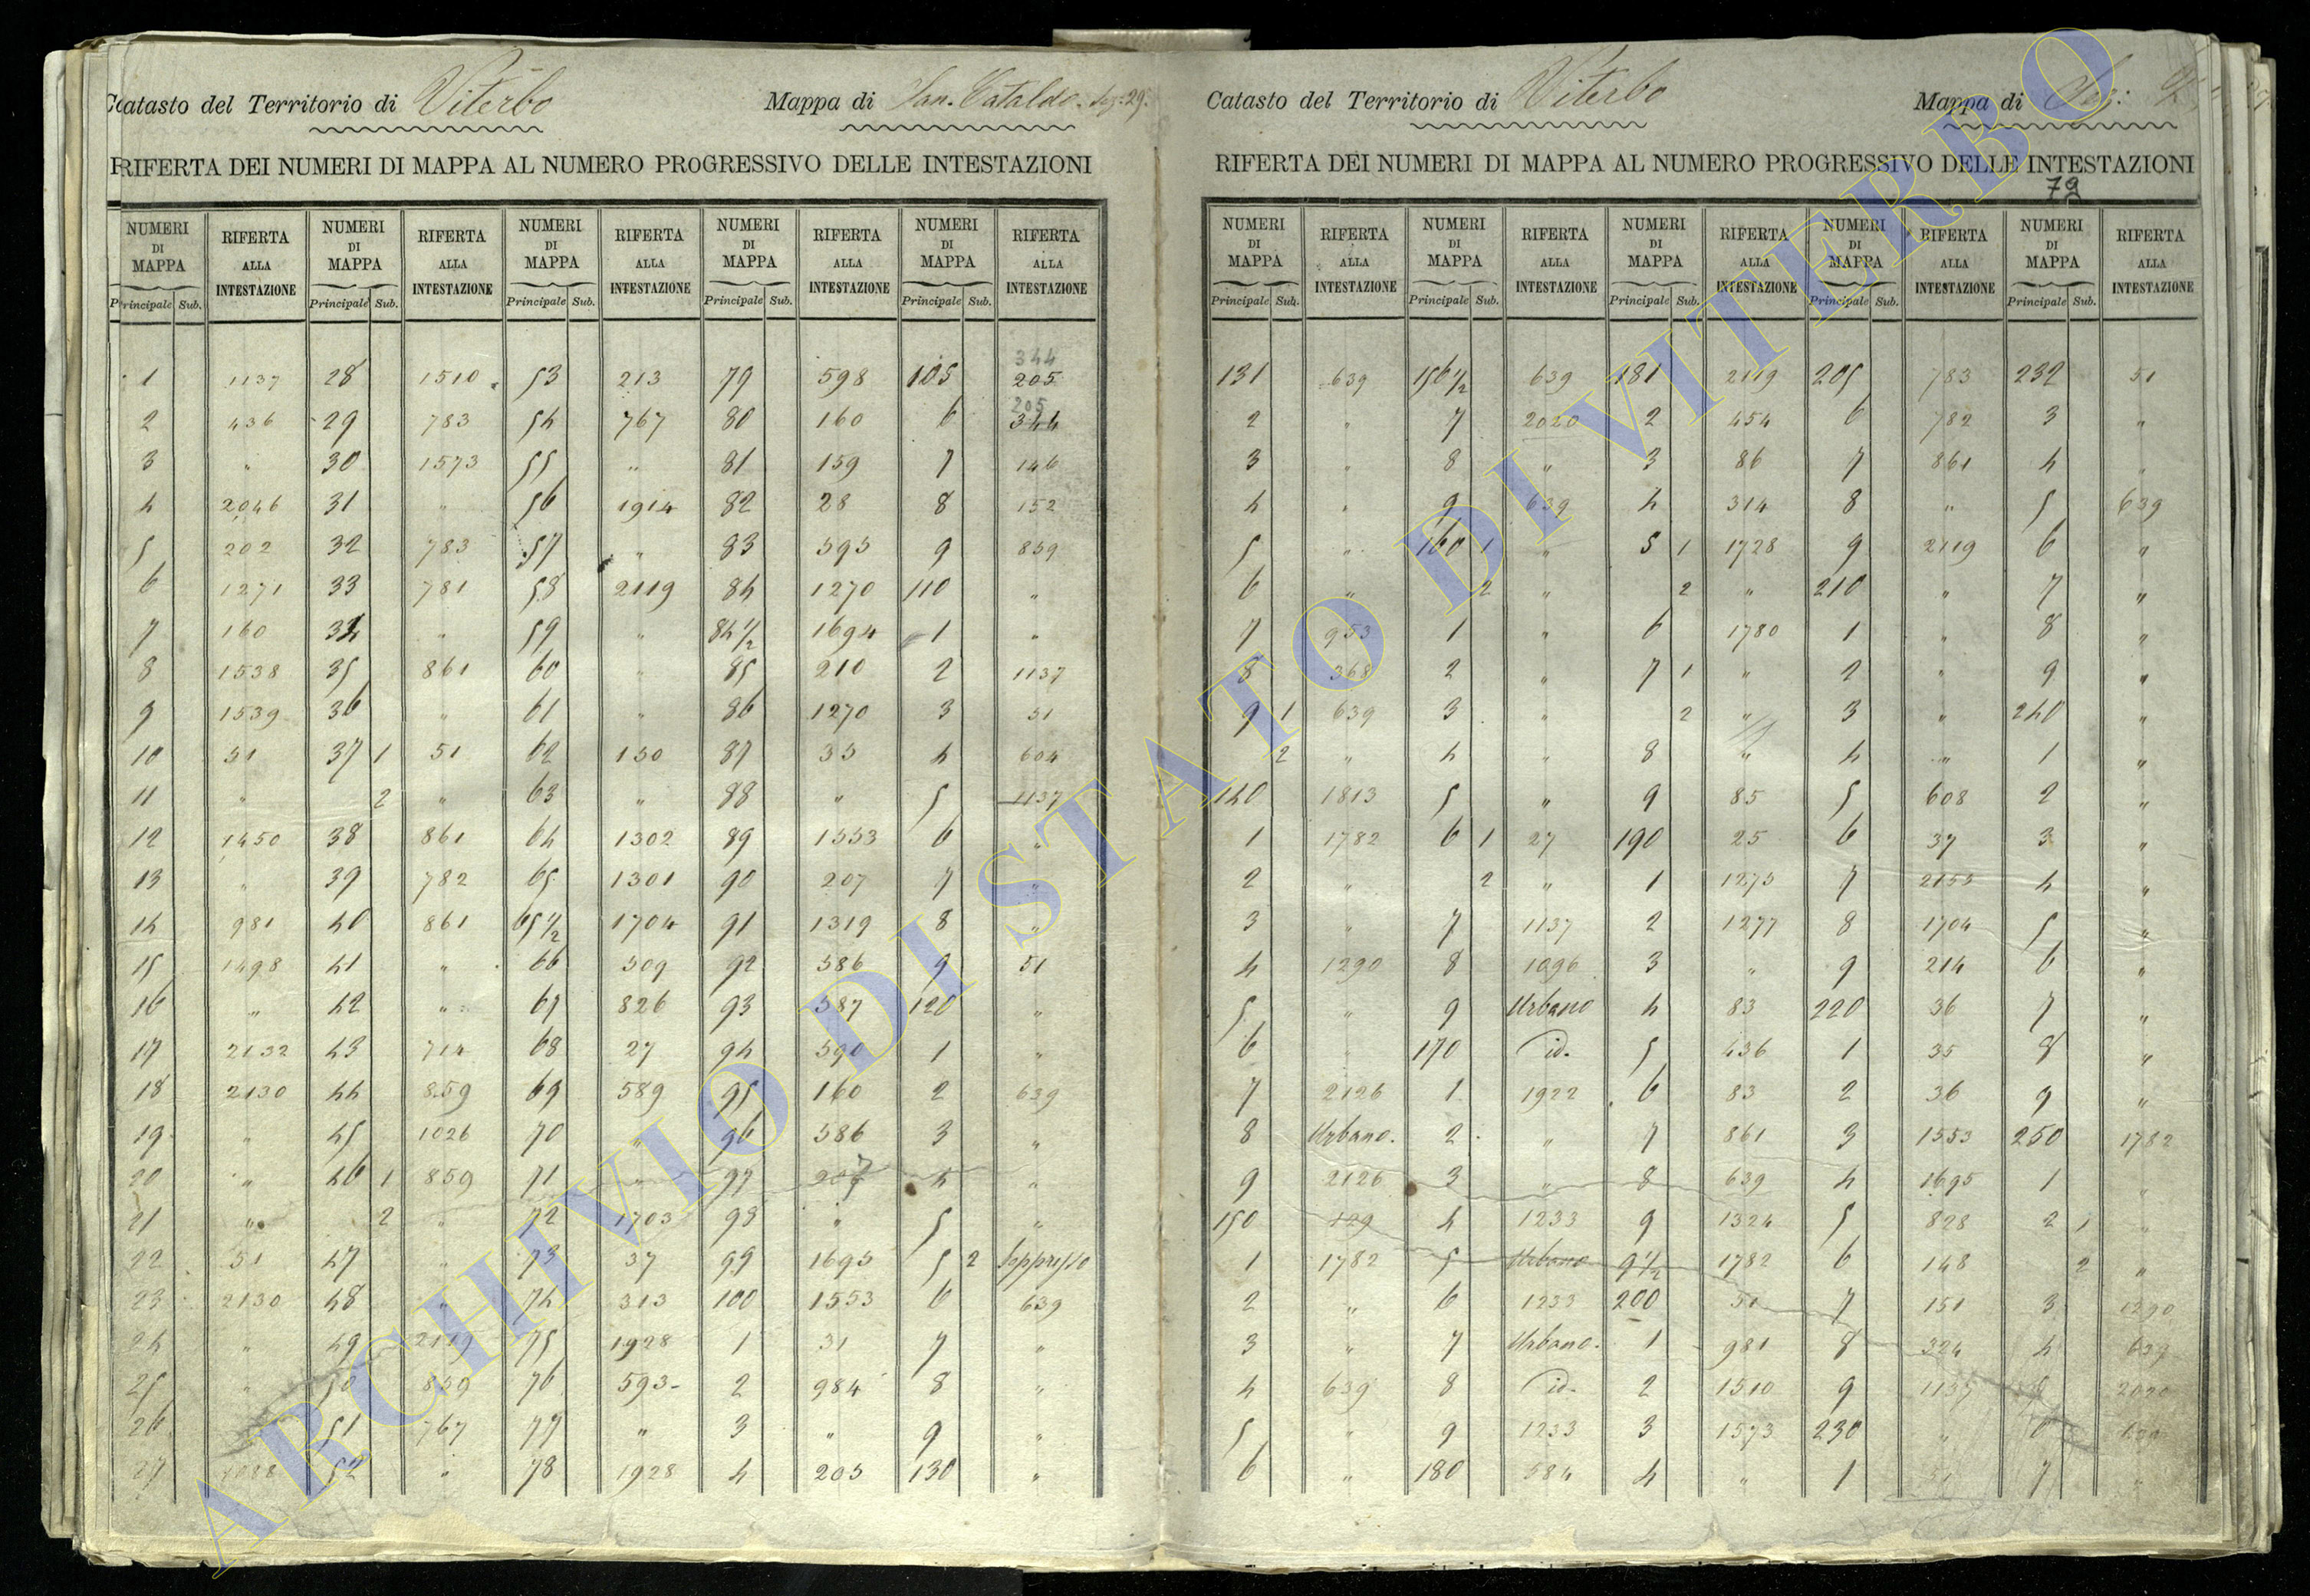 Catasto del Territorio di Viterbo Mappa di San Cataldo Sez: 29.
RIFERTA DEI NUMERI DI MAPPA AL NUMERO PROGRESSIVO DELLE INTESTAZIONI
NUMERI DI MAPPA RIFERTA ALLA INTESTAZIONE NUMERI DI MAPPA RIFERTA ALLA INTESTAZIONE NUMERI DI MAPPA RIFERTA ALLA INTESTAZIONE NUMERI DI MAPPA RIFERTA ALLA INTESTAZIONE NUMERI DI MAPPA RIFERTA ALLA INTESTAZIONE
Principale Sub. Principale Sub. Principale Sub. Principale Sub. Principale Sub.
344
1 1137 28 1510 53 213 79 598 105 205
205
2 436 29 783 54 767 80 160 6 344
3 " 30 1573 55 " 81 159 7 146
4 2046 31 " 56 1914 82 28 8 152
5 202 32 783 57 " 83 595 9 859
6 1271 33 781 58 2119 84 1270 110 "
7 160 34 " 59 " 84 1/2 1694 1 "
8 1538 35 861 60 " 85 210 2 1137
9 1539 36 " 61 " 86 1270 3 51
10 51 37 1 51 62 150 87 35 4 604
11 " 2 " 63 " 88 " 5 1137
12 1450 38 861 64 1302 89 1553 6 "
13 " 39 782 65 1301 90 207 7 "
14 981 40 861 65 1/2 1704 91 1319 8 "
15 1498 41 " 66 509 92 586 9 51
16 " 42 " 67 826 93 587 120 "
17 2132 43 714 68 27 94 590 1 "
18 2130 44 859 69 589 95 160 2 639
19 " 45 1026 70 " 96 586 3 "
20 " 46 1 859 71 " 97 207 4 "
21 " 2 " 72 1703 98 " 5 "
22 51 47 " 73 37 99 1695 5 2 Soppresso
23 2130 48 " 74 313 100 1553 6 639
24 " 49 2119 75 1928 1 31 7 "
25 " 50 859 76 593 2 984 8 "
26 51 767 77 " 3 " 9 "
27 52 " 78 1928 4 205 130 "
Catasto del Territorio di Viterbo Mappa di Sez:
RIFERTA DEI NUMERI DI MAPPA AL NUMERO PROGRESSIVO DELLE INTESTAZIONI
79
NUMERI DI MAPPA RIFERTA ALLA INTESTAZIONE NUMERI DI MAPPA RIFERTA ALLA INTESTAZIONE NUMERI DI MAPPA RIFERTA ALLA INTESTAZIONE NUMERI DI MAPPA RIFERTA ALLA INTESTAZIONE NUMERI DI MAPPA RIFERTA ALLA INTESTAZIONE
Principale Sub. Principale Sub. Principale Sub. Principale Sub. Principale Sub.
131 639 156 1/2 639 181 2119 205 783 232 51
2 " 7 2020 2 454 6 782 3 "
3 " 8 " 3 86 7 861 4 "
4 " 9 639 4 314 8 " 5 639
5 " 160 1 " 5 1 1728 9 2119 6 "
6 " 2 " 2 " 210 " 7 "
7 953 1 " 6 1780 1 " 8 "
8 368 2 " 7 1 " 2 " 9 "
9 1 639 3 " 2 " 3 " 240 "
2 " 4 " 8 " 4 " 1 "
140 1813 5 " 9 85 5 608 2 "
1 1782 6 1 27 190 25 6 37 3 "
2 " 2 " 1 1275 7 2155 4 "
3 " 7 1137 2 1277 8 1704 5 "
4 1290 8 1096 3 " 9 214 6 "
5 " 9 Urbano 4 83 220 36 7 "
6 " 170 id. 5 436 1 35 8 "
7 2126 1 1922 6 83 2 36 9 "
8 Urbano. 2 " 7 861 3 1553 250 1782
9 2126 3 " 8 639 4 1695 1 "
150 129 4 1233 9 1324 5 828 2 1 "
1 1782 5 Urbano 9 1/2 1782 6 148 2 "
2 " 6 1233 200 51 7 151 3 1290
3 " 7 Urbano. 1 981 8 324 4 639
4 639 8 id. 2 1510 9 1137 2020
5 " 9 1233 3 1573 230 " 6
6 " 180 584 4 " 1 51 7 "
ARCHIVIO DI STATO DI VITERBO